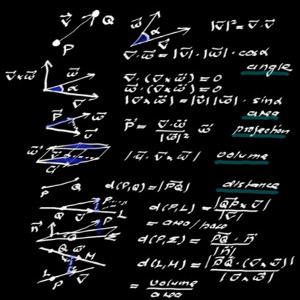 v⃗ Q P
w⃗ α v⃗ |v⃗|² = v⃗ · v⃗
v⃗ · w⃗ = |v⃗| · |w⃗| · cos α
angle
v⃗ × w⃗ w⃗ α v⃗
v⃗ · (v⃗ × w⃗) = 0
w⃗ · (v⃗ × w⃗) = 0
|v⃗ × w⃗| = |v⃗| |w⃗| · sin α
area
P⃗ w⃗ v⃗ P⃗ = v⃗ · w⃗ / |w⃗|² w⃗ projection
w⃗ v⃗ u⃗ |u⃗ · v⃗ × w⃗| volume
P Q d(P,Q) = |P⃗Q| distance
P Q L d(P,L) = |Q⃗P × v⃗| / |v⃗|
= area/base
n⃗ P Q d(P,Σ) = P⃗Q · n⃗ / |n⃗|
Q w⃗ M d(L,M) = |P⃗Q · (v⃗ × w⃗)| / |v⃗ × w⃗|
L P v⃗
= volume / area